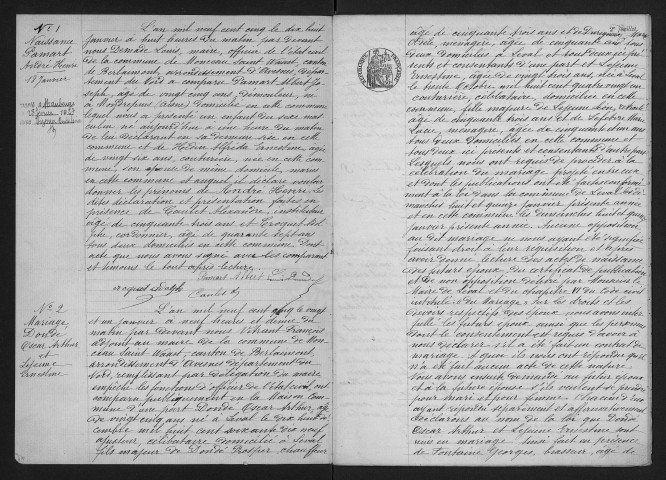 N° 1
Naissance
Pamart
André Henri
18 Janvier
L'an mil neuf cent cinq le dix huit
janvier à huit heures du matin par devant
nous Louis, maire, officier de l'état civil
de la commune de Monceau Saint Waast, canton
de Berlaimont, arrondissement d'Avesnes, dépar-
tement du Nord a comparu Pamart Albert Jo-
seph, âgé de vingt cinq ans, né
à Mondrepuis (Aisne) domicilié en cette commune
lequel nous a présenté un enfant du sexe mas-
culin né à une heure du matin
de lui déclarant en sa demeure sise en cette
commune et de Elfrida Ernestine, âgée
de vingt six ans, couturière, née en cette com-
mune, son épouse de même domicile, mariés
en cette commune et auquel il a déclaré vouloir
donner les prénoms de André Henri. Les
dites déclaration et présentation faites en
présence de Caulet Alexandre, instituteur
âgé de cinquante trois ans et Croquet Adol-
phe, cordonnier, âgé de quarante sept ans
tous deux domiciliés en cette commune. Dont
acte que nous avons signé avec les comparant
et témoins le tout après lecture.
Pamart Albert
Croquet Adolphe
Caulet A
N° 2
Mariage
Dondé
Oscar Arthur
et
Lejeune
Ernestine
L'an mil neuf cent cinq le vingt
et un janvier à neuf heures et demie du
matin par devant nous Vitrant François
adjoint au maire de la commune de Mon-
ceau Saint Waast, canton de Berlaimont,
arrondissement d'Avesnes département du
Nord, remplissant par délégation du maire
empêché les fonctions d'officier de l'état civil, ont
comparu publiquement en la Maison Com-
mune d'une part Dondé Oscar Arthur, âgé
de vingt cinq ans né à Leval le dix huit dé-
cembre mil huit cent soixante dix neuf
ajusteur, célibataire domicilié à Leval
fils majeur de Dondé Prosper chauffeur
âgé de cinquante trois ans et de
Adèle, ménagère, âgée de cinquante deux
ans domiciliés à Leval et tous deux ici pré-
sents et consentants d'une part et Lejeune
Ernestine, âgée de vingt trois ans, née à Leval
le trente Octobre mil huit cent quatre vingt un
couturière, célibataire, domiciliée en cette
commune, fille majeure de Lejeune
âgé de cinquante trois ans et de Lefebvre
ménagère, âgée de cinquante et un ans
tous deux domiciliés en cette commune et
tous deux ici présents et consentants d'autre part
Lesquels nous ont requis de procéder à la
célébration du mariage projeté entre eux
et dont les publications ont été faites conformé-
ment à la loi dans la commune de Leval les di-
manches huit et quinze janvier présente année
et en cette commune les dimanches huit et quinze
janvier présente année. Aucune opposition
au dit mariage ne nous ayant été signifiée
faisant droit à leur réquisition et après
avoir donné lecture des actes de naissance
des futurs époux, du certificat de publication
et de non opposition délivré par Monsieur le
Maire de Leval et du chapitre VI du Code civil
intitulé du Mariage, Sur les droits et les
devoirs respectifs des époux, nous avons inter-
pellé les futurs époux ainsi que les personnes
dont le consentement est requis d'avoir à
nous déclarer s'il a été fait un contrat de
mariage. A quoi ils nous ont répondu qu'il
n'a été fait aucun acte de cette nature.
Nous avons ensuite demandé au futur époux
et à la future épouse s'ils veulent se prendre
pour mari et pour femme. Chacun d'eux
ayant répondu séparément et affirmativement
déclarons au nom de la loi que Dondé
Oscar Arthur et Lejeune Ernestine sont
unis en mariage. Ainsi fait en présence
de Fontaine Georges, brasseur, âgé de